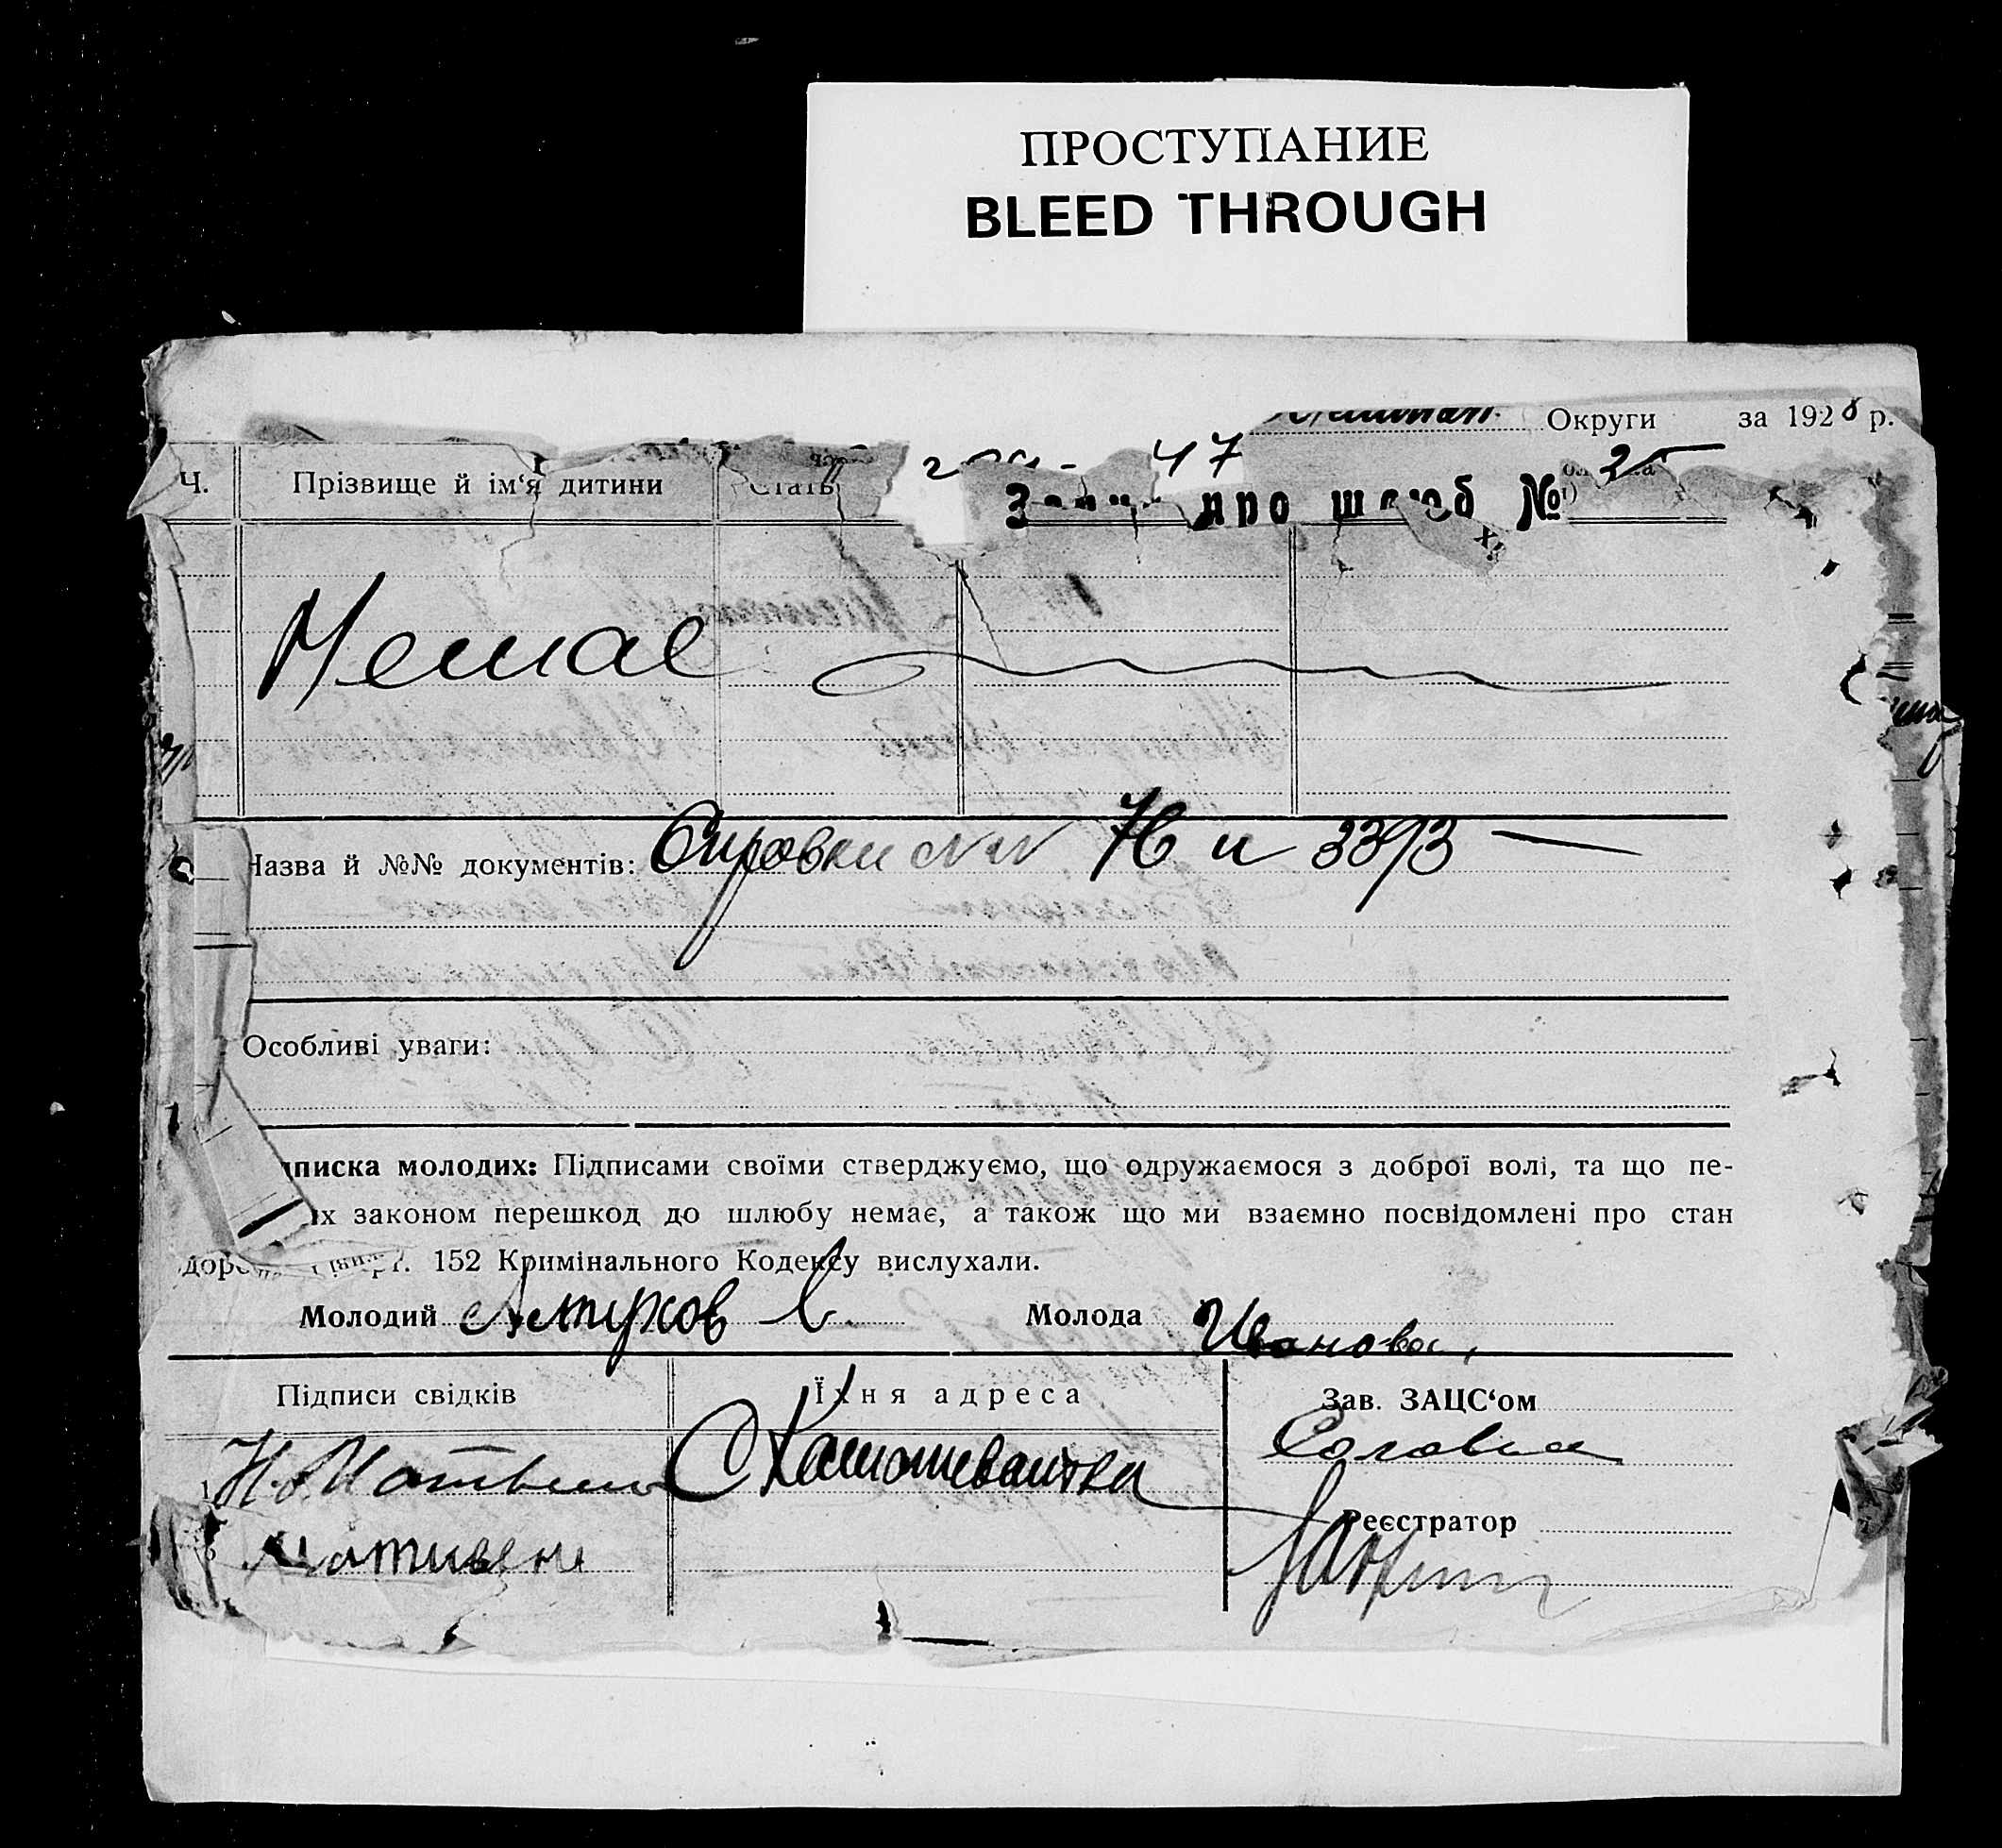 ПРОСТУПАНИЕ
BLEED THROUGH
Округи за 1928 р.
47 25
про шлюб №
Ч. Прізвище й ім‘я дитини Стать
Немає
Назва й №№ документів: Справки NN 76 и 3393
Особливі уваги:
писка молодих: Підписами своїми стверджуємо, що одружаємося з доброї волі, та що пе-
их законом перешкод до шлюбу немає, а також що ми взаємно посвідомлені про стан
доро 152 Кримінального Кодексу вислухали.
Молодий Алтухов Молода Иванова
Підписи свідків Їхня адреса Зав. ЗАЦС‘ом
С Камышеватка
Реєстратор